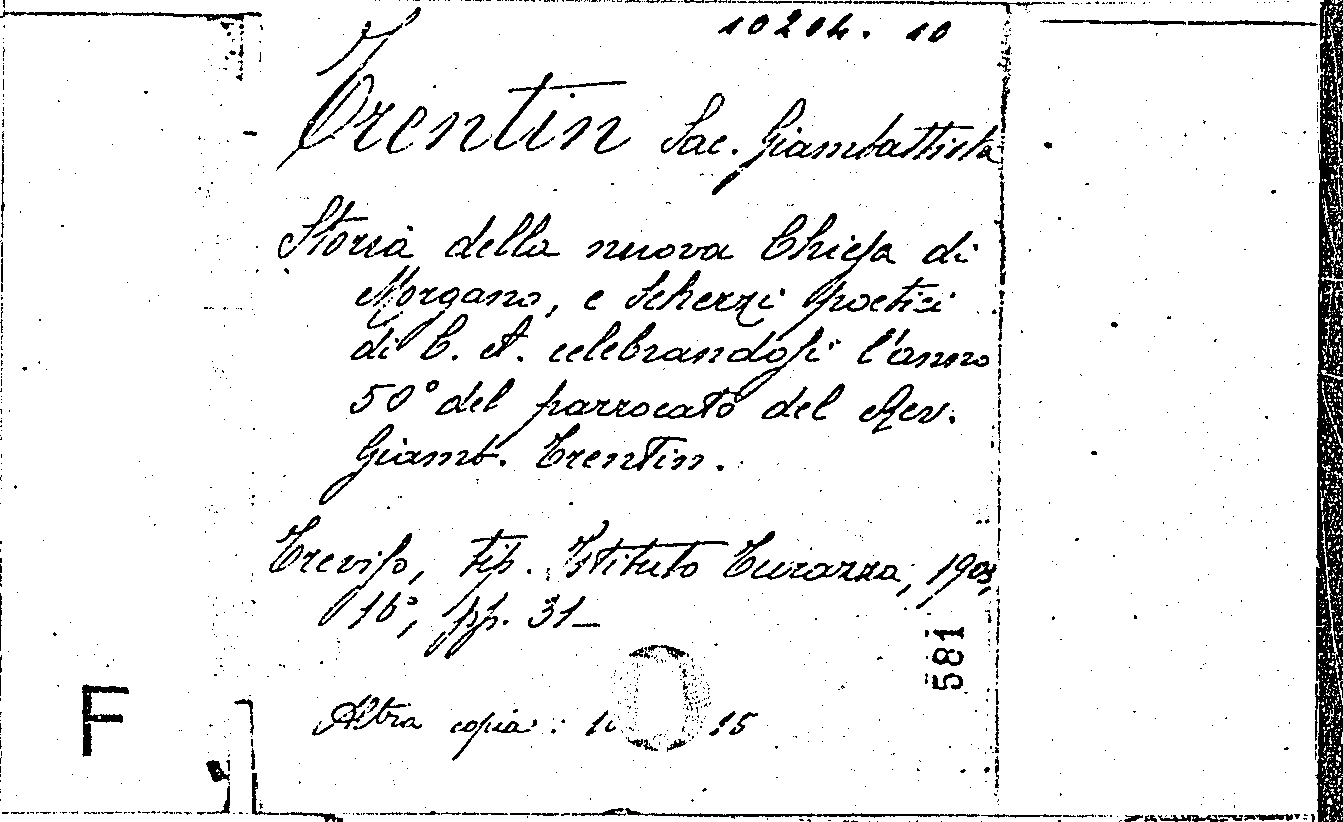 10204. 10
Trentin Sac. Giambattista
Storia della nuova Chiesa di
Morgano, e Scherzi poetici
di C. A. celebrandosi l'anno
50° del parrocato del Rev.
Giamb. Trentin.
Treviso, tip. Istituto Turazza,
16°, pp. 31_
581
F
Altra copia: 15